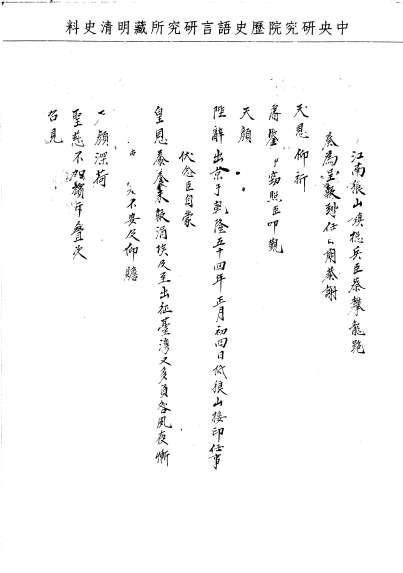 中央研究院歷史語言研究所藏明清史料
江南狼山鎮總兵臣蔡攀龍跪
奏為呈報到任日期恭謝
天恩仰祈
聖鑒竊照臣叩覲
天顏
陛辭出京于乾隆五十四年正月初四日抵狼山接印任事
伏念臣自蒙
皇恩豢養未報涓埃及至出征臺灣又多負咎夙夜慚
不安及仰瞻
顏深荷
聖慈不加譴斥疊次
召見